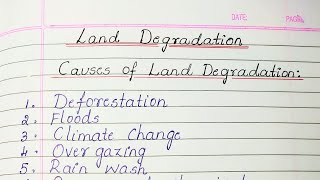 DATE PAGE
Land Degradation
Causes of Land Degradation:
1. Deforestation
2. Floods
3. Climate Change
4. Over gazing
5. Rain Wash